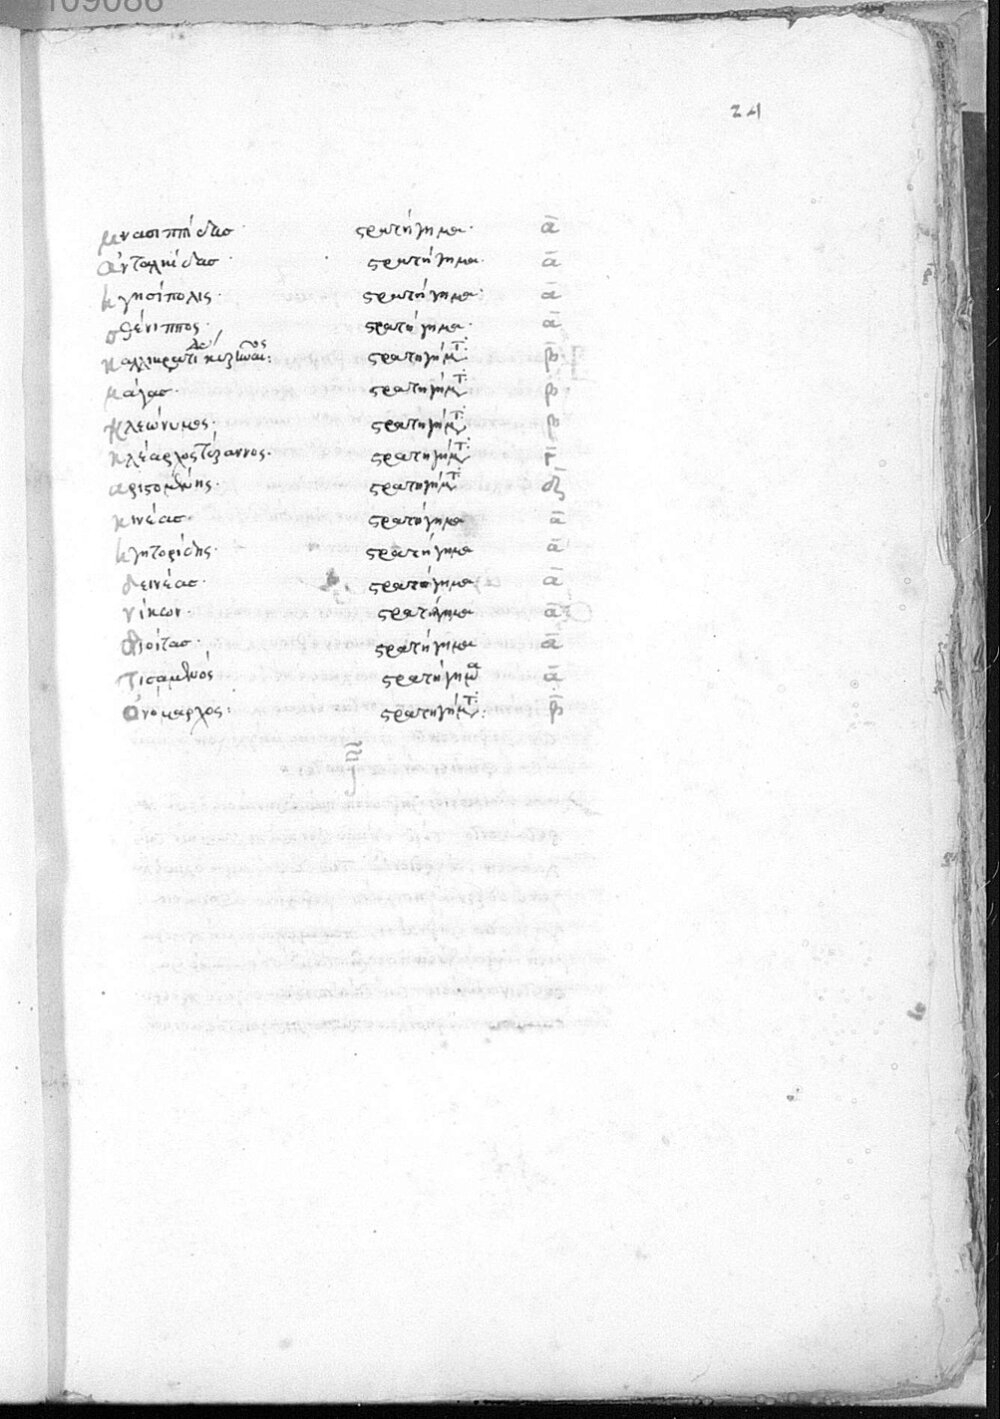 24
μνασιππίδας· στρατήγημα· α
ἀνταλκίδας· στρατήγημα· α
ἁγησίπολις· στρατήγημα· α
σθένιππος· στρατήγημα· α
καλλικρατίδας κυζικηνός: στρατηγήμτ: β
μάγας· στρατηγήμτ: β
κλεώνυμος· στρατηγήμτ: β
κλέαρχος τύραννος· στρατηγήμτ: γ
ἀριστομένης· στρατηγήμτ: δ
κινέας· στρατήγημα α
ἡγητορίδης· στρατήγημα α
δεινίας· στρατήγημα α
νίκων· στρατήγημα α
διοίτας· στρατήγημα α
τισαμενός στρατήγημα α
ὀνόμαρχος: στρατηγήμτ: β